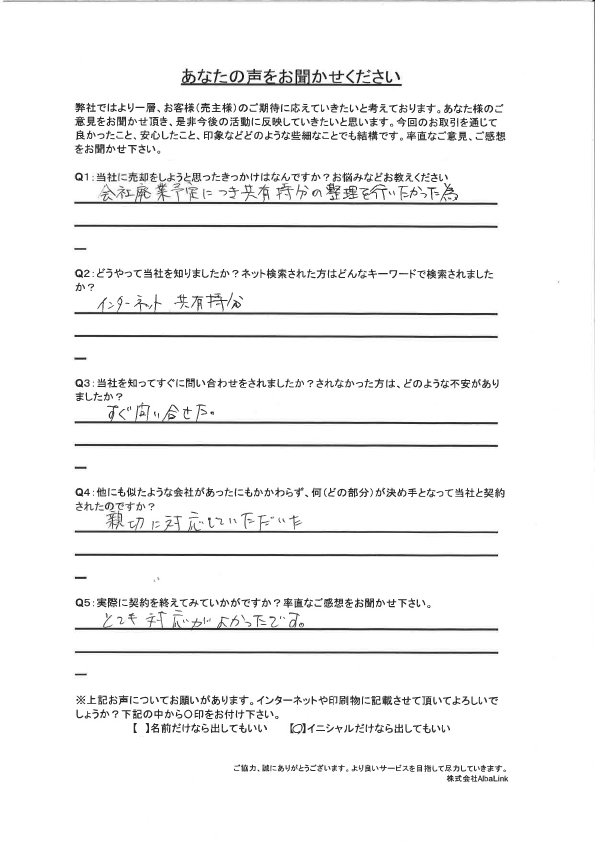 あなたの声をお聞かせください
弊社ではより一層、お客様(売主様)のご期待に応えていきたいと考えております。あなた様のご
意見をお聞かせ頂き、是非今後の活動に反映していきたいと思います。今回のお取引を通じて
良かったこと、安心したこと、印象などどのような些細なことでも結構です。率直なご意見、ご感想
をお聞かせ下さい。
Q1:当社に売却をしようと思ったきっかけはなんですか?お悩みなどお教えください
会社廃業予定につき共有持分の整理を行いたかった為
Q2:どうやって当社を知りましたか?ネット検索された方はどんなキーワードで検索されました
か?
インターネット 共有持分
Q3:当社を知ってすぐに問い合わせをされましたか?されなかった方は、どのような不安があり
ましたか?
すぐ問い合せた。
Q4:他にも似たような会社があったにもかかわらず、何(どの部分)が決め手となって当社と契約
されたのですか?
親切に対応していただいた
Q5:実際に契約を終えてみていかがですか?率直なご感想をお聞かせ下さい。
とても対応がよかったです。
※上記お声についてお願いがあります。インターネットや印刷物に記載させて頂いてよろしいで
しょうか?下記の中から〇印をお付け下さい。
【 】名前だけなら出してもいい 【〇】イニシャルだけなら出してもいい
ご協力、誠にありがとうございます。より良いサービスを目指して尽力していきます。
株式会社AlbaLink